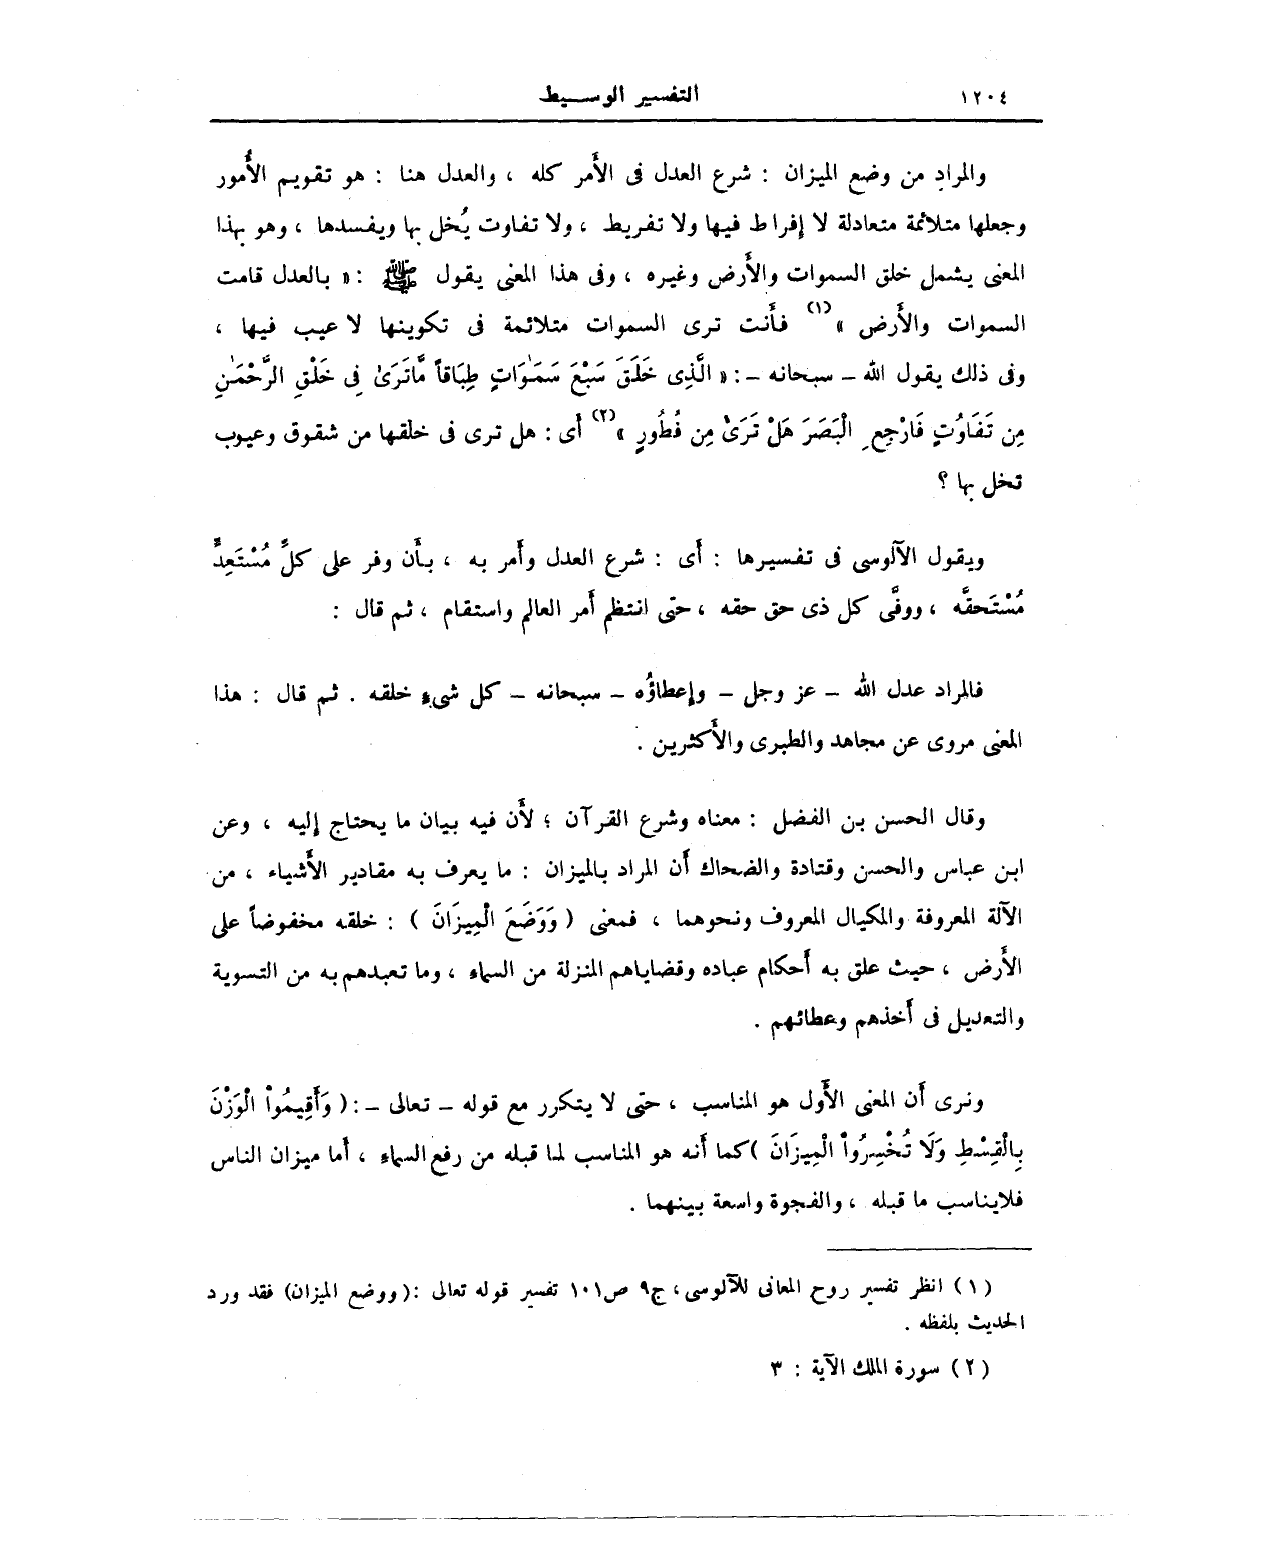 ١٢٠٤ التفسير الوسيط
والمراد من وضع الميزان : شرع العدل فى الأَمر كله ، والعدل هنا : هو تقويم الأُمور
وجعلها متلائمة متعادلة لا إفراط فيها ولا تفريط ، ولا تفاوت يُخل بها ويفسدها ، وهو بهذا
المعنى يشمل خلق السموات والأَرض وغيره ، وفى هذا المعنى يقول ﷺ : « بالعدل قامت
السموات والأَرض »(١) فأَنت ترى السموات متلائمة فى تكوينها لا عيب فيها ،
وفى ذلك يقول الله – سبحانه – : « الَّذِى خَلَقَ سَبْعَ سَمَٰوَاتٍ طِبَاقاً مَّاتَرَىٰ فِى خَلْقِ الرَّحْمَٰنِ
مِن تَفَاوُتٍ فَارْجِعِ الْبَصَرَ هَلْ تَرَىٰ مِن فُطُورٍ »(٢) أَى : هل ترى فى خلقها من شقوق وعيوب
تخل بها ؟
ويقول الآلوسى فى تفسيرها : أَى : شرع العدل وأَمر به ، بأَن وفر على كلِّ مُسْتَعِدٍّ
مُسْتَحقَّه ، ووفَّى كل ذى حق حقه ، حتى انتظم أَمر العالم واستقام ، ثم قال :
فالمراد عدل الله – عز وجل – وإعطاؤُه – سبحانه – كل شىءٍ خلقه . ثم قال : هذا
المعنى مروى عن مجاهد والطبرى والأَكثرين .
وقال الحسن بن الفضل : معناه وشرع القرآن ؛ لأَن فيه بيان ما يحتاج إليه ، وعن
ابن عباس والحسن وقتادة والضحاك أَن المراد بالميزان : ما يعرف به مقادير الأَشياء ، من
الآلة المعروفة والمكيال المعروف ونحوهما ، فمعنى ( وَوَضَعَ الْمِيزَانَ ) : خلقه مخفوضاً على
الأَرض ، حيث علق به أَحكام عباده وقضاياهم المنزلة من السماء ، وما تعبدهم به من التسوية
والتعديل فى أَخذهم وعطائهم .
ونرى أَن المعنى الأَول هو المناسب ، حتى لا يتكرر مع قوله – تعالى – : ( وَأَقِيمُواْ الْوَزْنَ
بِالْقِسْطِ وَلَا تُخْسِرُواْ الْمِيزَانَ ) كما أَنه هو المناسب لما قبله من رفع السماء ، أَما ميزان الناس
فلايناسب ما قبله ، والفجوة واسعة بينهما .
( ١ ) انظر تفسير روح المعانى للآلوسى ، ج٩ ص١٠١ تفسير قوله تعالى : ( ووضع الميزان ) فقد ورد
الحديث بلفظه .
( ٢ ) سورة الملك الآية : ٣